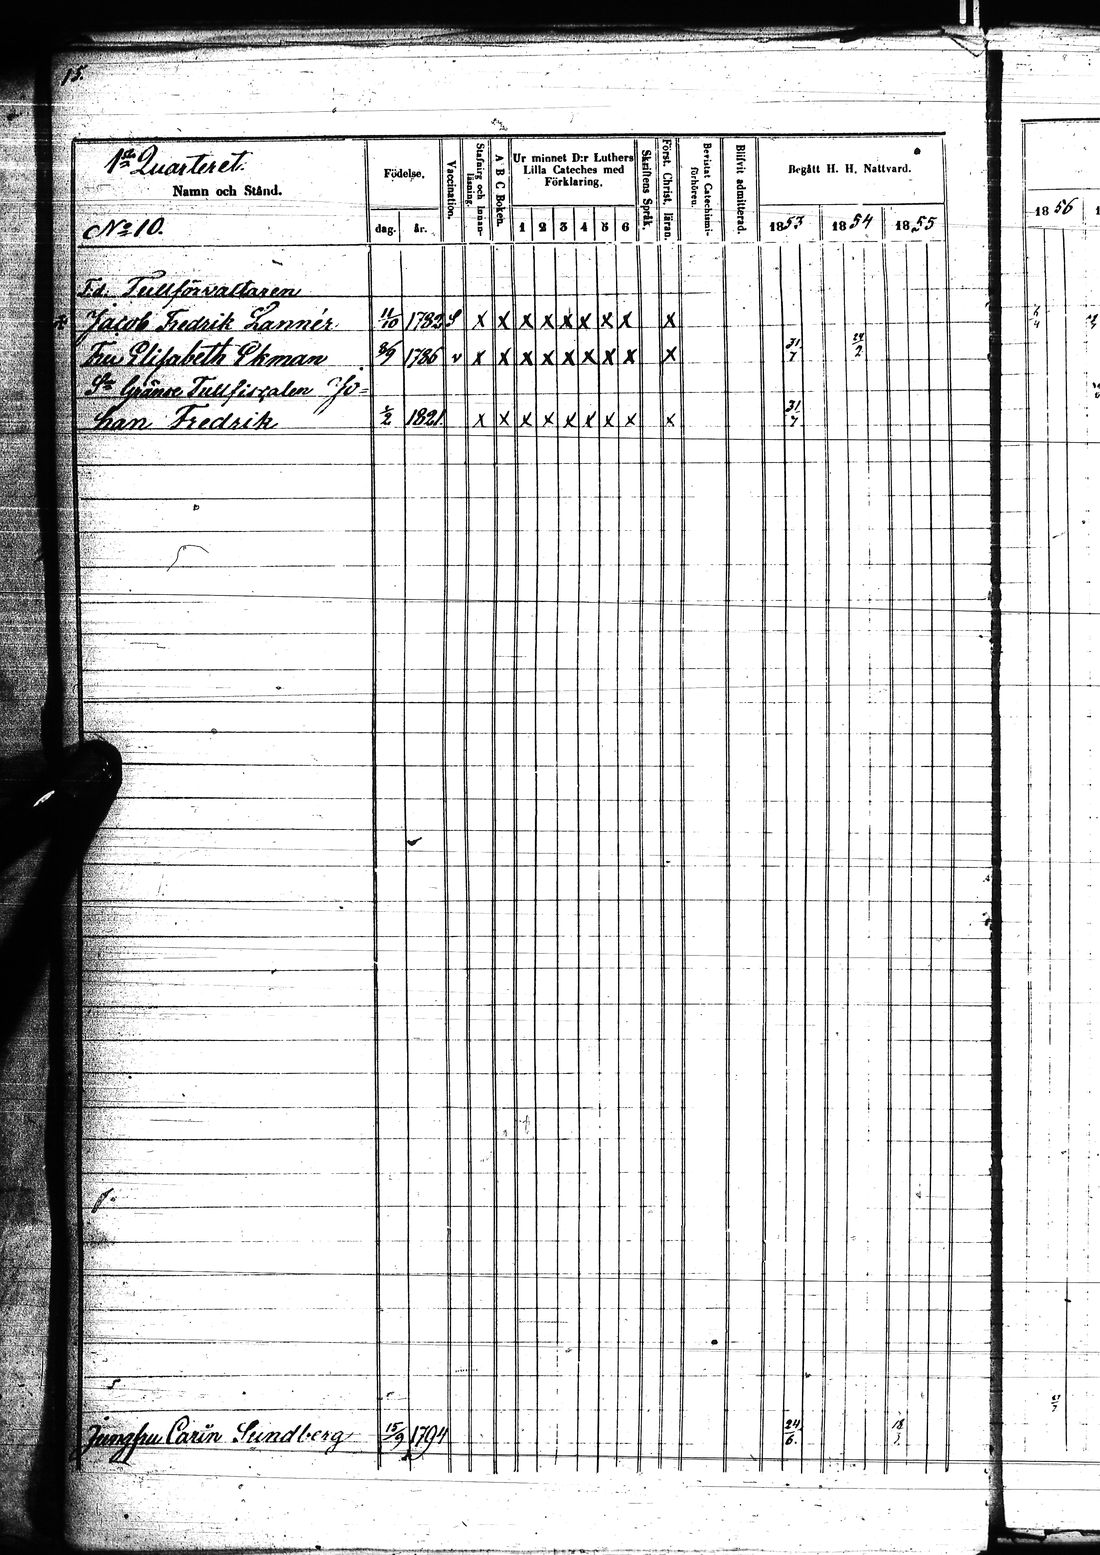 15.
1sta Quarteret.
Namn och Stånd.
No 10.
Födelse.
dag. år.
Vaccination.
Stafning och Innanläsning.
A B C Boken.
Ur minnet D:r Luthers
Lilla Cateches med
Förklaring.
1 2 3 4 5 6
Skriftens Språk.
Först. Christ. läran.
Bevistat Catechismi-
förhören.
Blifvit admitterad.
Begått H. H. Nattvard.
1853 1854 1855
1856
F.d. Tullförvaltaren
Jacob Fredrik Lannér 11/10 1782 S x x x x x x x x x
Fru Elisabeth Ekman 8/9 1786 v x x x x x x x x x 31/7 24/2
Sn Gränse Tullfiscalen Jo=
han Fredrik 1/2 1821. x x x x x x x x x 31/7
Jungfru Carin Sundberg 15/9 1794 24/6